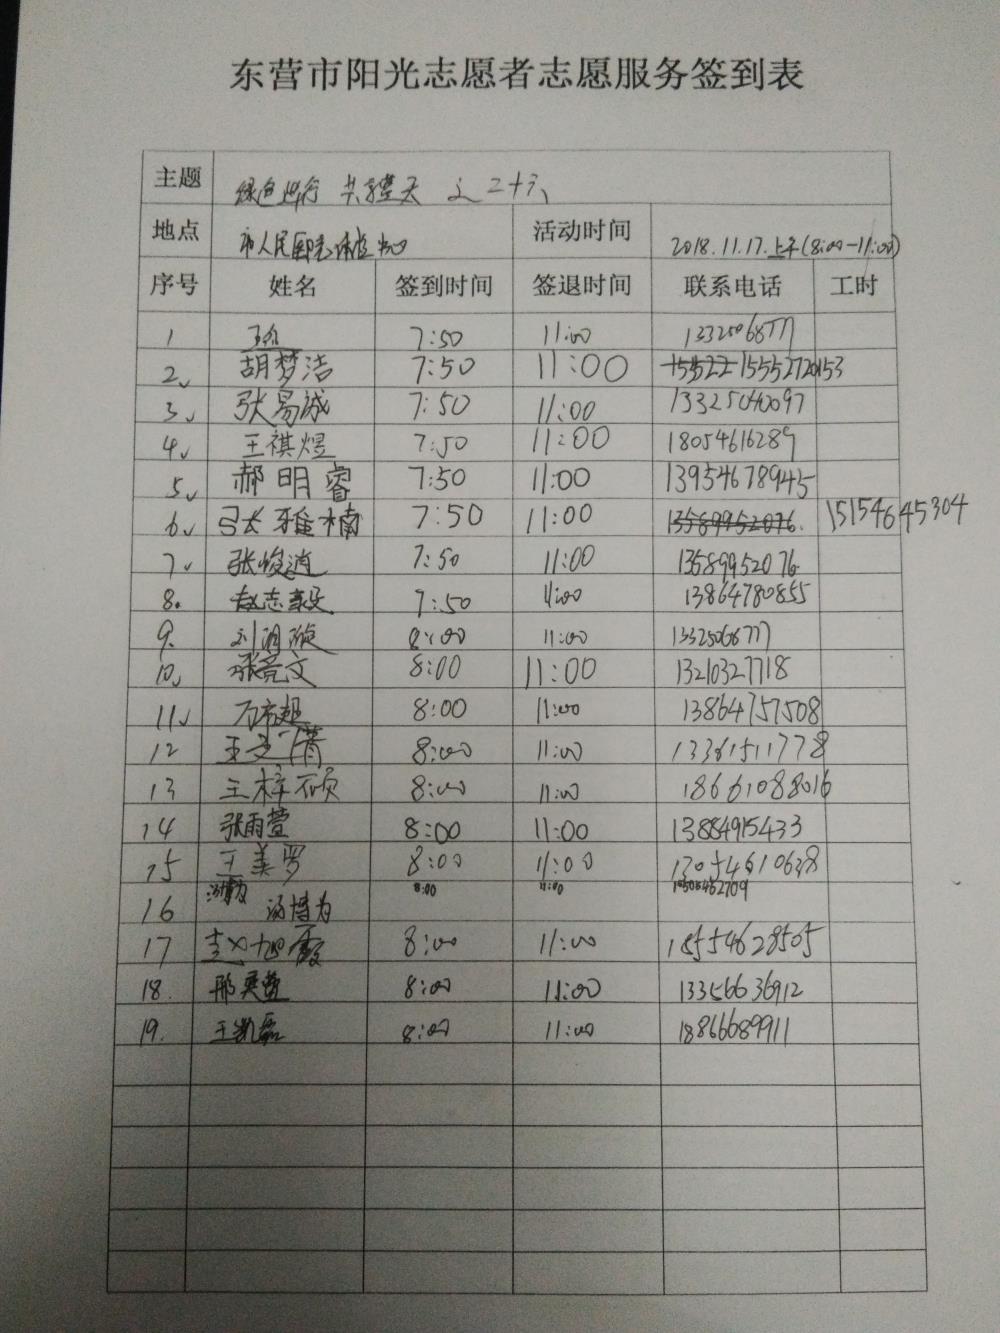 东营市阳光志愿者志愿服务签到表
主题 绿色出行 共享蓝天 之二十六
地点 市人民医院体检中心 活动时间 2018.11.17.上午(8:00-11:00)
序号 姓名 签到时间 签退时间 联系电话 工时
1 7:50 11:00
2 胡梦洁 7:50 11:00 15552720153
3 张易诚 7:50 11:00 13325040097
4 王祺煜 7:50 11:00 18054616289
5 郝明睿 7:50 11:00 13954678945
6 张雅楠 7:50 11:00 13589952076. 15154645304
7 张峻逍 7:50 11:00 13589952076
8. 赵志毅 7:50 11:00 13864780855
9. 8:00 11:00 13325068777
10. 张亮文 8:00 11:00 13210327718
11 8:00 11:00 13864757508
12 王文倩 8:00 11:00 13361511778
13 王梓硕 8:00 11:00 18661088016
14 张雨萱 8:00 11:00 13884915433
15 王美罗 8:00 11:00 13054610638
汤博为 8:00 11:00
16 汤博为
17 赵旭霞 8:00 11:00 18554628505
18. 邢奕萱 8:00 11:00 13356636912
19. 王凯磊 8:00 11:00 18866689911